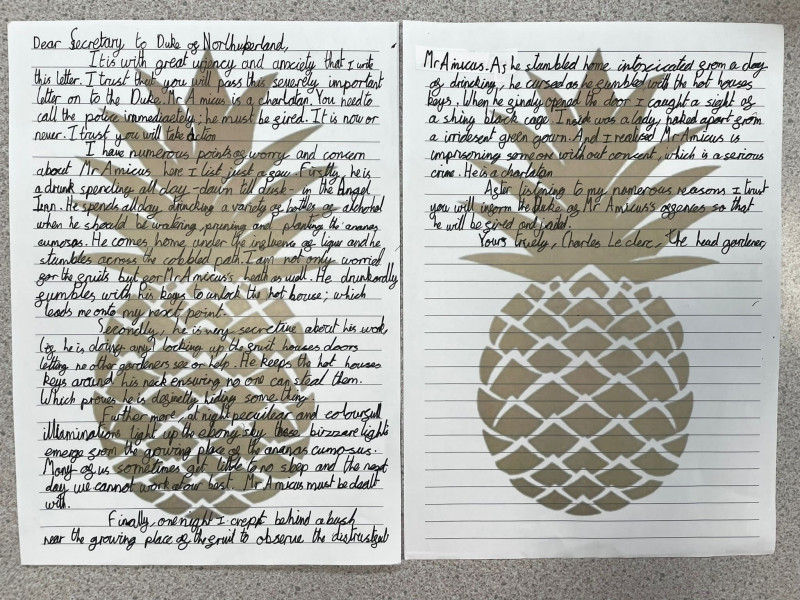 Dear Secretary to Duke of Northuperland,
It is with great urgency and anxiety that I write
this letter. I trust that you will pass this severely important
letter on to the Duke. Mr Amicus is a charlatan. You need to
call the police immediately; he must be fired. It is now or
never. I trust you will take action
I have numerous points of worry and concern
about Mr Amicus, here I list just a few. Firstly, he is
a drunk spending all day - dawn till dusk - in the
Inn. He spends all day drinking a variety of bottles of alchohol
when he should be watering, pruning and planting the ananas
cumosus. He comes home under the influence of liquor and he
stumbles across the cobbled path. I am not only worried
for the fruits but for Mr Amicus's health as well. He drunkardly
fumbles with his keys to unlock the hot house; which
leads me onto my next point.
Secondly, he is very secretive about his work,
(if he is doing any) locking up the fruit houses doors
letting no other gardeners see or help. He keeps the hot houses
keys around his neck ensuring no one can steal them.
Which proves he is definetly hiding some thing.
Further more, at night peculiear and colourfull
illiaminations light up the ebony sky these birzzare lights
emerge from the growing place of the ananas cumo-sus.
Many of us sometimes get little to no sleep and the next
day we cannot work at our best. Mr Amicus must be dealt
with.
Finally, one night I crept behind a bush
near the growing place of the fruit to observe the distrustfull
Mr Amicus. As he stumbled home intoxicated from a day
of drinking, he cursed as he fumbled with the hot houses
keys. When he finaly opened the door I caught a sight of
a shiny black cage. Inside was a lady, naked apart from
a irridesent green gown. And I realised Mr Amicus is
imprisoning someone without consent, which is a serious
crime. He is a charlatan
After listening to my numerous reasons I trust
you will inform the Duke of Mr Amicus's offences so that
he will be fired and jailed.
Yours truely, Charles Le clerc, The head gardener,